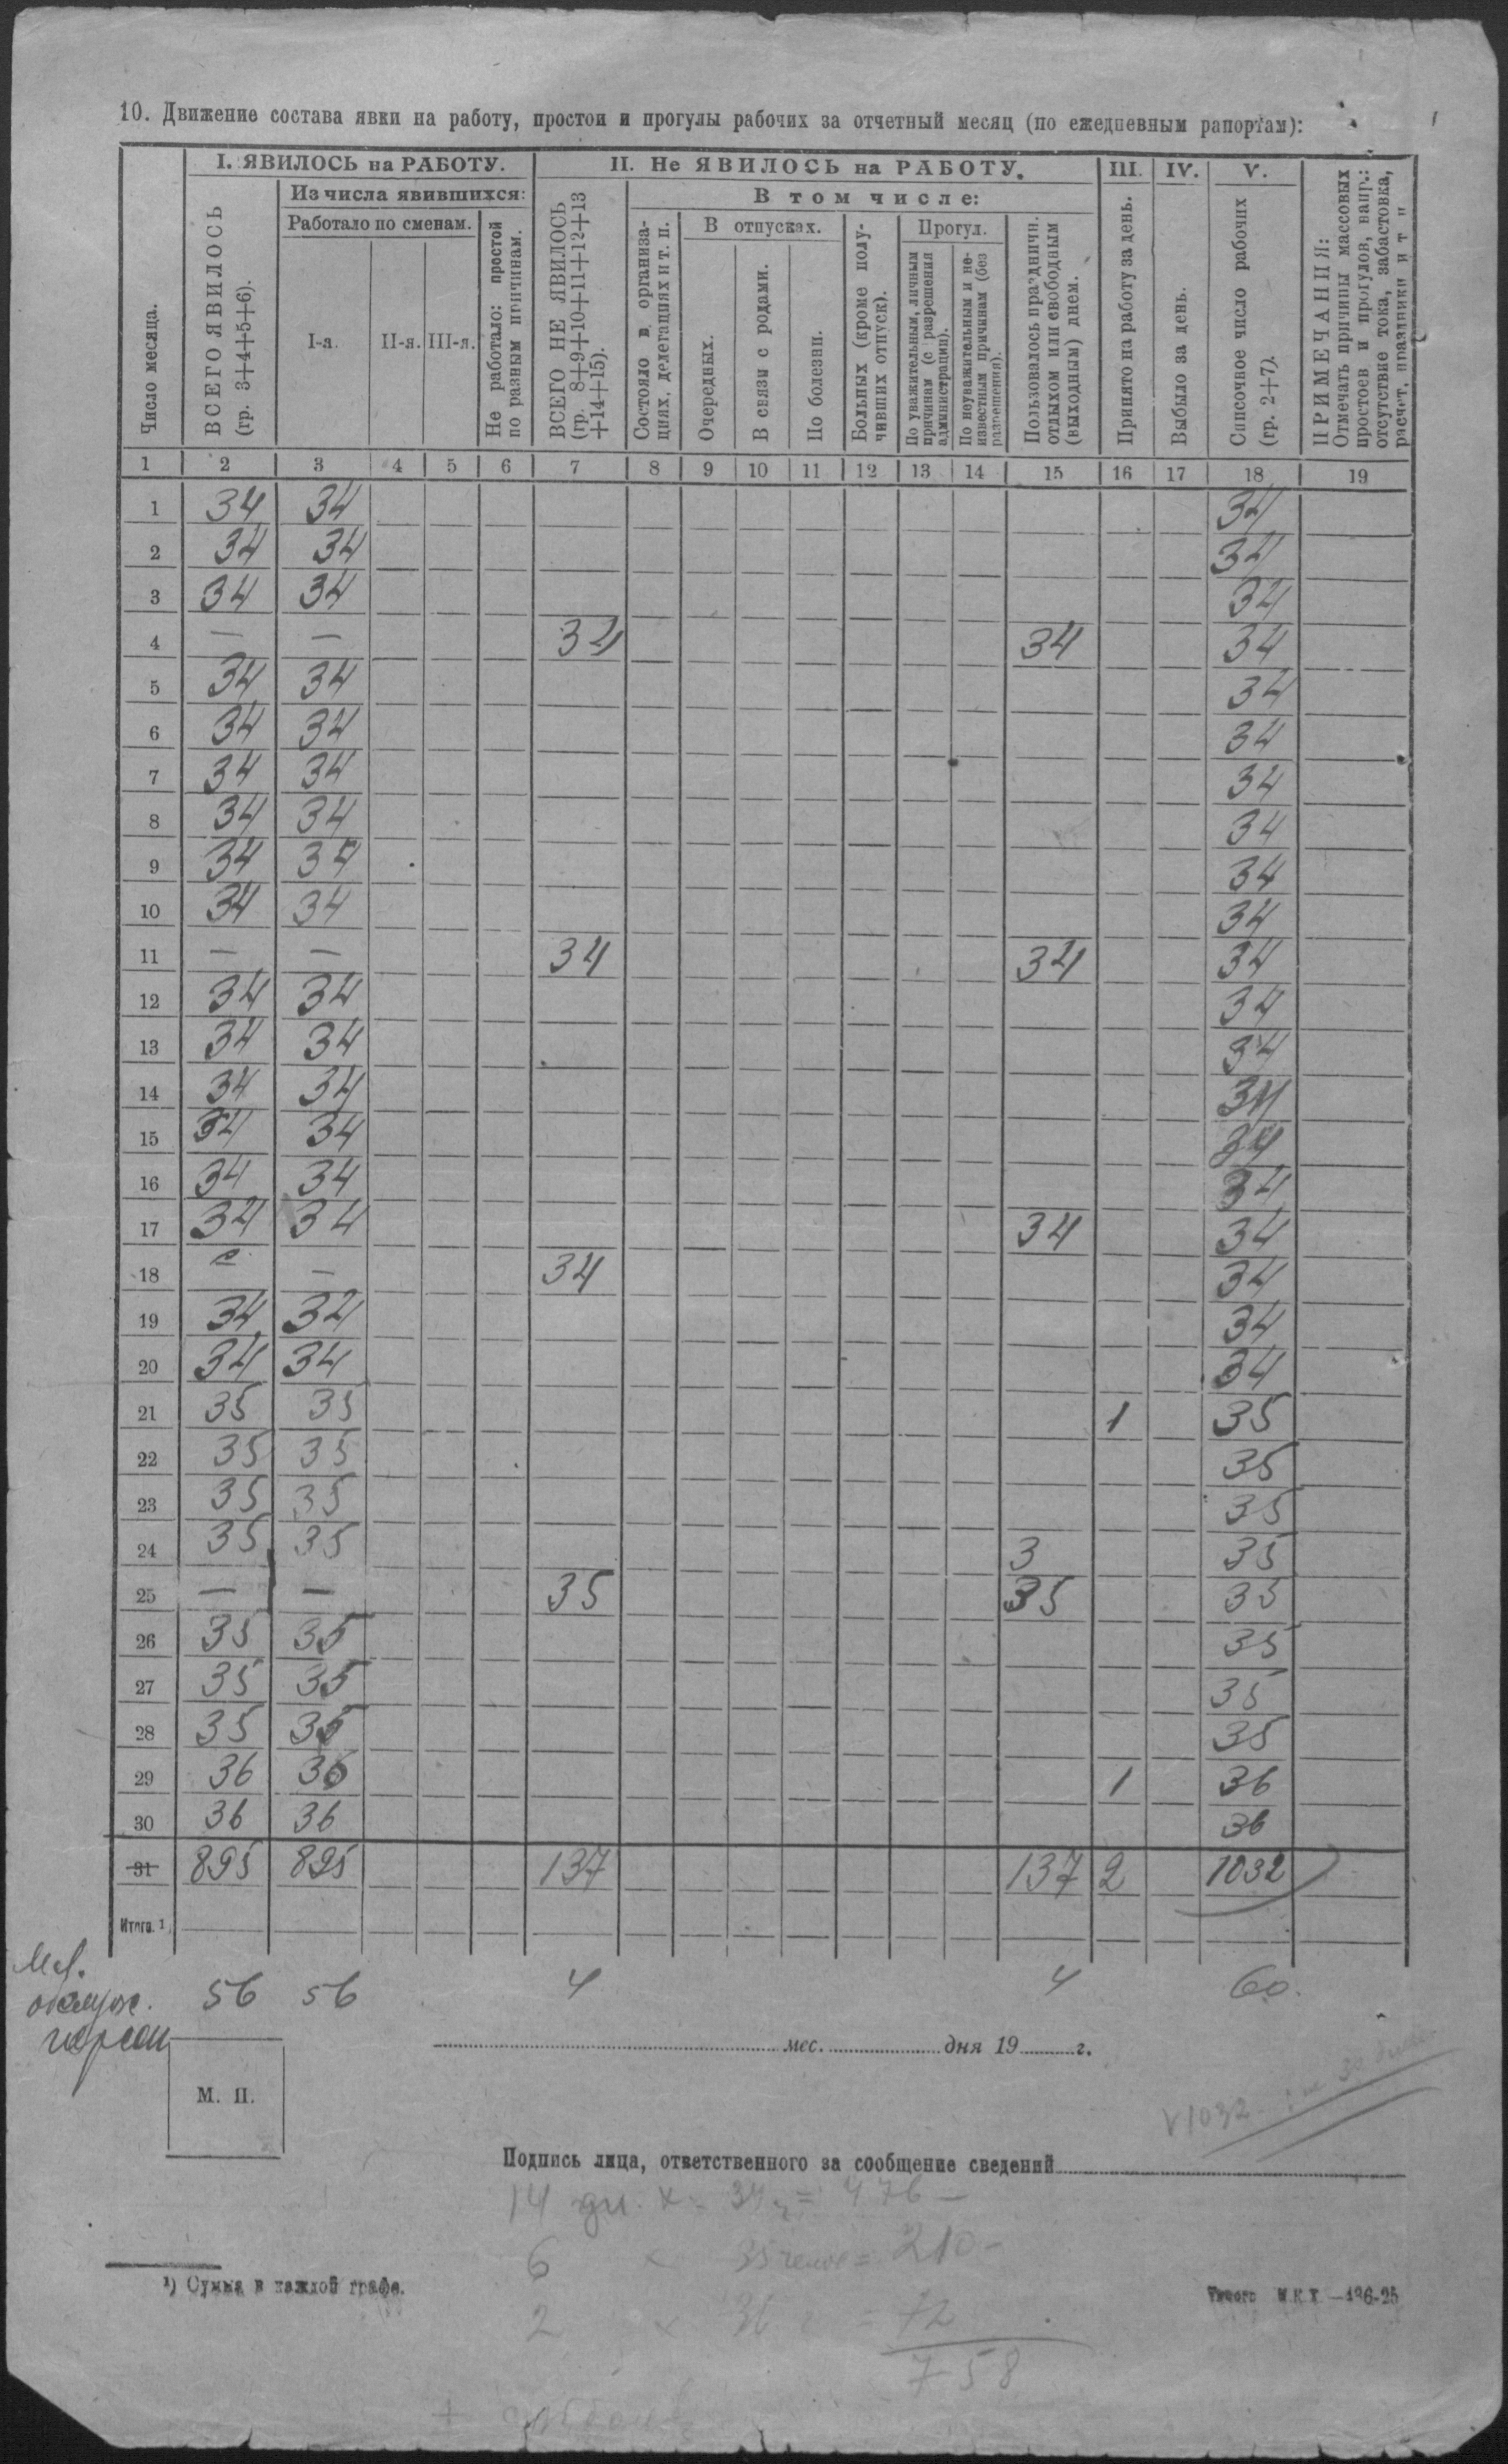 10. Движение состава явки на работу, простои и прогулы рабочих за отчетный месяц (по ежедневным рапортам):
Число месяца.
I. ЯВИЛОСЬ на РАБОТУ.
ВСЕГО ЯВИЛОСЬ (гр. 3+4+5+6).
Из числа явившихся:
Работало по сменам.
I-а.
II-я.
III-я.
Не работало: простой по разным причинам.
II. Не ЯВИЛОСЬ на РАБОТУ.
ВСЕГО НЕ ЯВИЛОСЬ (гр. 8+9+10+11+12+13+14+15).
В том числе:
Состояло в организациях, делегациях и т. п.
В отпусках.
Очередных.
В связи с родами.
По болезни.
Больных (кроме получивших отпуск).
Прогул.
По уважительным, личным причинам (с разрешения администрации).
По неуважительным и неизвестным причинам (без разрешения).
Пользовалось праздничн. отдыхом или свободным (выходным) днем.
III.
Принято на работу за день.
IV.
Выбыло за день.
V.
Списочное число рабочих (гр. 2+7).
ПРИМЕЧАНИЯ:
Отмечать причины массовых простоев и прогулов, напр.: отсутствие тока, забастовка, расчет, праздники и т п
1 2 3 4 5 6 7 8 9 10 11 12 13 14 15 16 17 18 19
1 34 34 34
2 34 34 34
3 34 34 34
4 — — 34 34 34
5 34 34 34
6 34 34 34
7 34 34 34
8 34 34 34
9 34 34 34
10 34 34 34
11 — — 34 34 34
12 34 34 34
13 34 34 34
14 34 34 34
15 34 34 34
16 34 34 34
17 34 34 34 34
18 — 34 34
19 34 34 34
20 34 34 34
21 35 35 1 35
22 35 35 35
23 35 35 35
24 35 35 3 35
25 — — 35 35 35
26 35 35 35
27 35 35 35
28 35 35 35
29 36 36 1 36
30 36 36 36
31 895 895 137 137 2 1032
Итого. 1
Мл.
обслуж.
персон
56 56 4 4 60.
мес. дня 19 г.
М. П.
V 1032
Подпись лица, ответственного за сообщение сведений
14 дн. х 34 = 476 —
6 х 35 челов = 210 —
2 х 36 = 72
758
¹) Сумма в каждой графе.
М.К.Х —126-25